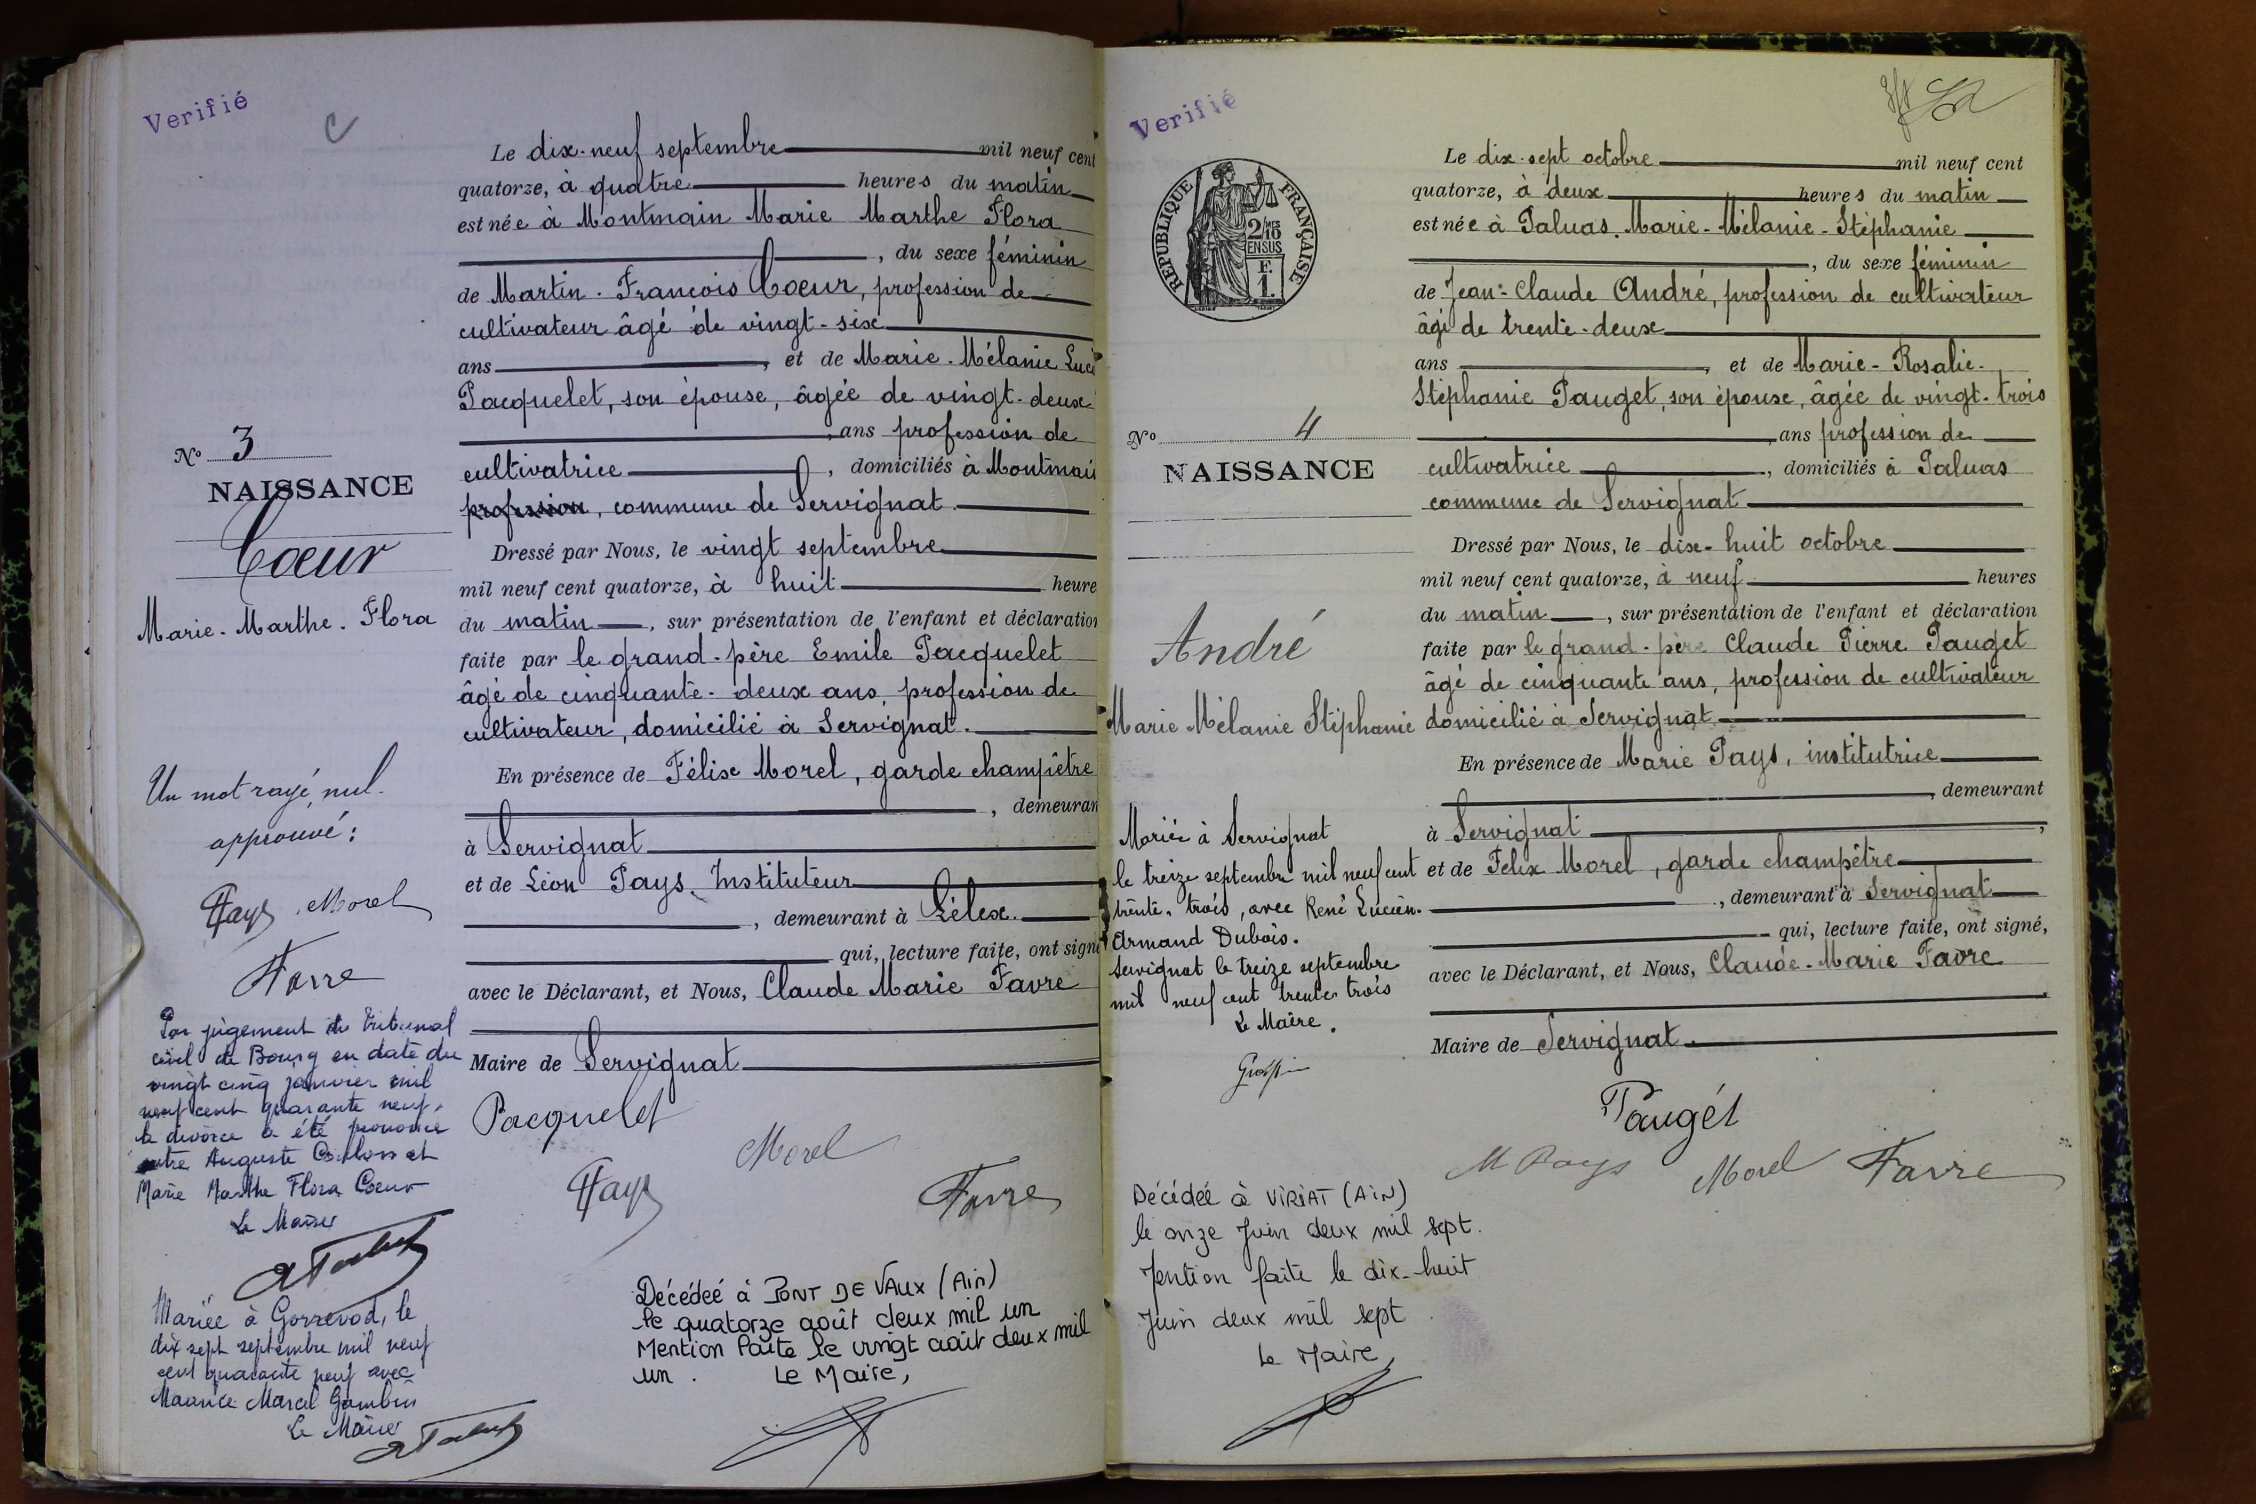 Verifié
C
Le dix-neuf septembre mil neuf cent
quatorze, à quatre heures du matin
est née à Montmain Marie Marthe Flora
, du sexe féminin
de Martin-François Coeur, profession de
cultivateur âgé de vingt-six
ans , et de Marie-Mélanie Luci
Pacquelet, son épouse, âgée de vingt-deux
, ans profession de
cultivatrice , domiciliés à Montmain
profession, commune de Servignat
Dressé par Nous, le vingt septembre
mil neuf cent quatorze, à huit heure
du matin , sur présentation de l'enfant et déclaration
faite par le grand-père Emile Pacquelet
âgé de cinquante-deux ans, profession de
cultivateur, domicilié à Servignat.
En présence de Félix Morel, garde champêtre
, demeuran
à Servignat
et de Léon Pays, Instituteur
, demeurant à Lélex.
qui, lecture faite, ont signé
avec le Déclarant, et Nous, Claude Marie Favre
Maire de Servignat
Pacquelet
Morel
Pays
Favre
No 3
NAISSANCE
Coeur
Marie-Marthe-Flora
Un mot rayé, nul.
approuvé:
Pays Morel
Favre
Par jugement du Tribunal
civil de Bourg en date du
vingt cinq janvier mil
neuf cent quarante neuf,
le divorce a été prononcé
entre Auguste et
Marie Marthe Flora Coeur
Le Maire
Mariée à Gorrevod, le
dix sept septembre mil neuf
cent quarante neuf avec
Maurice Marcel
Le Maire
Décédée à PONT DE VAUX (Ain)
le quatorze août deux mil un
Mention faite le vingt août deux mil
un. Le Maire,
Verifié
REPUBLIQUE FRANÇAISE
2/10 MES
EN SUS
F.
1.
Le dix-sept octobre mil neuf cent
quatorze, à deux heures du matin
est née à Paluas. Marie-Mélanie-Stéphanie
, du sexe féminin
de Jean-Claude André, profession de cultivateur
âgé de trente-deux
ans , et de Marie-Rosalie-
Stéphanie Pauget, son épouse, âgée de vingt-trois
ans profession de
cultivatrice , domiciliés à Paluas
commune de Servignat
Dressé par Nous, le dix-huit octobre
mil neuf cent quatorze, à neuf heures
du matin , sur présentation de l'enfant et déclaration
faite par le grand-père Claude Pierre Pauget
âgé de cinquante ans, profession de cultivateur
domicilié à Servignat
En présence de Marie Pays, institutrice
, demeurant
à Servignat ,
et de Félix Morel, garde champêtre
, demeurant à Servignat
qui, lecture faite, ont signé,
avec le Déclarant, et Nous, Claude-Marie Favre
Maire de Servignat.
Paugét
M Pays Morel Favre
No 4
NAISSANCE
André
Marie Mélanie Stéphanie
Mariée à Servignat
le treize septembre mil neuf cent
trente-trois, avec René Lucien-
Armand Dubois.
Servignat le treize septembre
mil neuf cent trente trois
Le Maire.
Décédée à VIRIAT (AIN)
le onze Juin deux mil sept.
Mention faite le dix-huit
Juin deux mil sept
Le Maire,